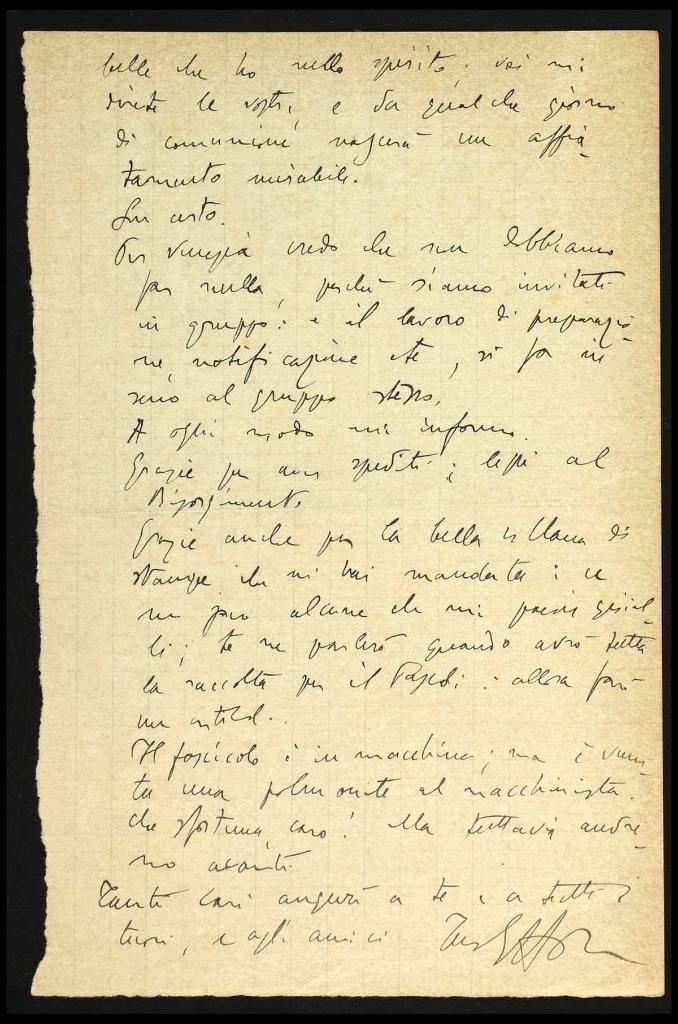 belle che ho nello spirito; voi mi
direte le vostre, e da qualche giorno
di comunione nascerà un affia-
tamento mirabile.
Son certo.
Per Venezia credo che non dobbiamo
far nulla, perché siamo invitati
in gruppo: e il lavoro di preparazio-
ne, notificazione ete, si fa in
seno al gruppo stesso.
A ogni modo mi informo.
Grazie per aver spediti i legni al
Risorgimento
Grazie anche per la bella collana di
stampe che mi hai mandata: ce
ne sono alcune che mi paiono
te ne parlerò quando avrò tutta
la raccolta per il : allora farò
un
Il fascicolo è in macchina; ma è venu-
ta una polmonite al macchinista.
che sfortuna caro! Ma tuttavia andre-
mo avanti.
Tanti cari auguri a te e a tutti i
tuoi, e agli amici tuo Ettore